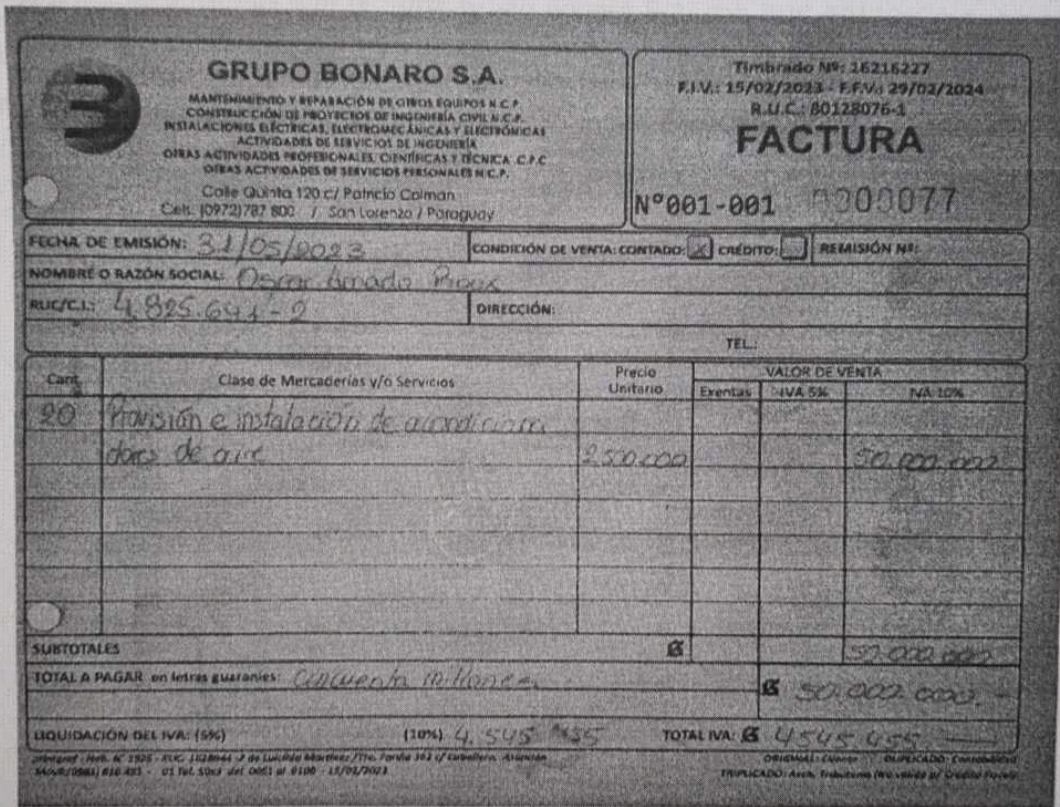 GRUPO BONARO S.A.
MANTENIMIENTO Y REPARACIÓN DE OTROS EQUIPOS N.C.P.
CONSTRUCCIÓN DE PROYECTOS DE INGENIERÍA CIVIL N.C.P.
INSTALACIONES ELÉCTRICAS, ELECTROMECÁNICAS Y ELECTRÓNICAS
ACTIVIDADES DE SERVICIOS DE INGENIERÍA
OTRAS ACTIVIDADES PROFESIONALES, CIENTÍFICAS Y TÉCNICA .C.P.C
OTRAS ACTIVIDADES DE SERVICIOS PERSONALES N.C.P.
Calle Quinta 120 c/ Patricio Colman
Cels. (0972)787 800 / San Lorenzo / Paraguay
Timbrado Nº: 16216227
F.I.V.: 15/02/2023 - F.F.V.: 29/02/2024
R.U.C.: 80128076-1
FACTURA
N°001-001 0000077
FECHA DE EMISIÓN: 31/05/2023 CONDICIÓN DE VENTA: CONTADO: X CRÉDITO: REMISIÓN Nº:
NOMBRE O RAZÓN SOCIAL: Oscar Amado
RUC/C.I.: 4.825.641-2 DIRECCIÓN:
TEL.:
Cant. Clase de Mercaderías y/o Servicios Precio Unitario VALOR DE VENTA
Exentas IVA 5% IVA 10%
20 Provisión e instalación de acondiciona
dores de aire 2.500.000 50.000.000
SUBTOTALES ₲ 50.000.000
TOTAL A PAGAR en letras guaraníes: Cincuenta millones ₲ 50.000.000.-
LIQUIDACIÓN DEL IVA: (5%) (10%) 4.545.455 TOTAL IVA: ₲ 4.545.455.-
de Lucidio Martínez /Tte. Fariña 362 c/ Caballero. Asunción
01 Tal. 50x3 del 0051 al 0100 - 15/02/2023
ORIGINAL: Cliente DUPLICADO: Contabilidad
TRIPLICADO: Arch. Tributario (No válido p/ Crédito Fiscal)